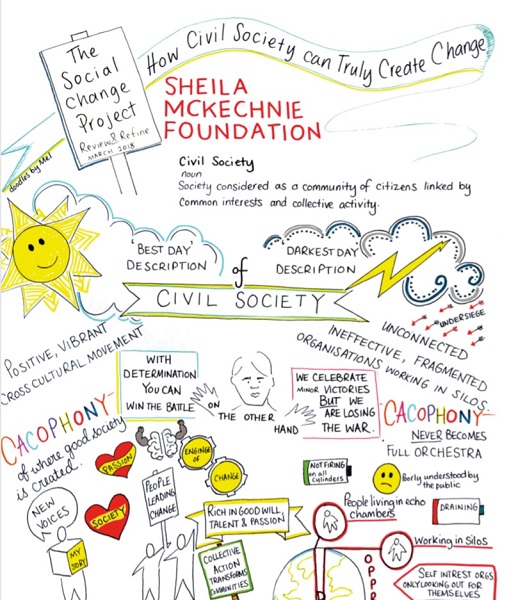 The
Social
Change
Project
Review & Refine
MARCH 2018
doodles by Mel
How Civil Society can Truly Create Change
SHEILA
MCKECHNIE
FOUNDATION
Civil Society
noun
Society considered as a community of citizens linked by
common interests and collective activity.
'BEST DAY'
DESCRIPTION
of
DARKEST DAY
DESCRIPTION
CIVIL SOCIETY
UNDERSIEGE
POSITIVE, VIBRANT
CROSS CULTURAL MOVEMENT
WITH
DETERMINATION
YOU CAN
WIN THE BATTLE
ON
THE OTHER
HAND
WE CELEBRATE
MINOR VICTORIES
BUT WE
ARE LOSING
THE WAR.
UNCONNECTED
INEFFECTIVE, FRAGMENTED
ORGANISATIONS WORKING IN SILOS
CACOPHONY
of where good society
is created.
CACOPHONY
NEVER BECOMES
FULL ORCHESTRA
PASSION
ENGINGE OF
CHANGE
NOT FIRING
on all
cylinders
Borly understood by
the public
PEOPLE
LEADING
CHANGE
NEW
VOICES
SOCIETY
MY
STORY
RICH IN GOOD WILL,
TALENT & PASSION
People living in echo
chambers
DRAINING
Working in Silos
COLLECTIVE
ACTION
TRANSFORMS
COMMUNITIES
OPPR
SELF INTREST ORGS
ONLY LOOKING OUT FOR
THEMSELVES